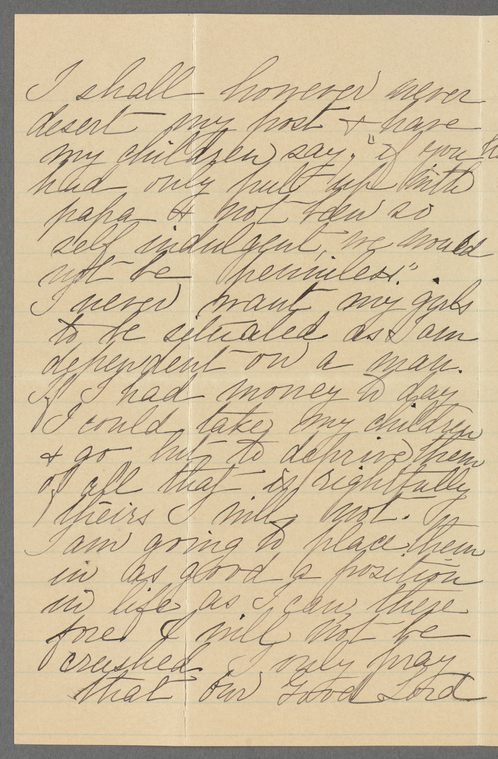 I shall however never
desert my post & have
my children say, "if you
had only put up with
papa & not been so
self indulgent, we would
not be penniless."
I never want my girls
to be situated as I am
dependent on a man.
If I had money to day
I could take my children
& go but to deprive them
of all that is rightfully
theirs I will not.
I am going to place them
in as good a position
in life as I can, there
fore I will not be
crushed. I only pray
that our Good Lord